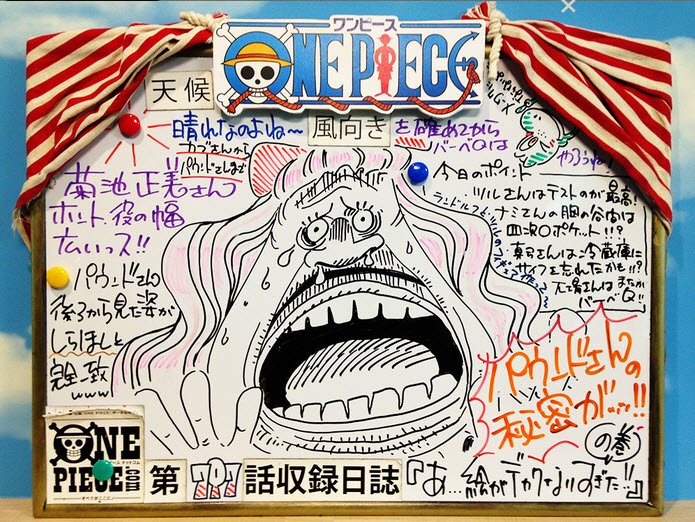 ワンピース
ONE PIECE
天候
晴れなのよね〜
カブさんから
パウンドしまで
風向き
を確めてから
バーベQは
やろうね!
菊池正美さん
ホント、役の幅
広いっス!!
パウンドさん
後ろから見た姿が
しらほしと
完全一致
www!
今日のポイント
ツルさんはテストのが最高!
ナミさんの胸の谷間は
四次元ポケット!!?
真弓さんは冷蔵庫に
サイフを忘れたかも!!?
バーベQ!!
パウンドさんの
秘密が…!!
の巻
ONE
PIECE
第
話収録日誌
『あ…絵がデカくなりすぎた…!!』